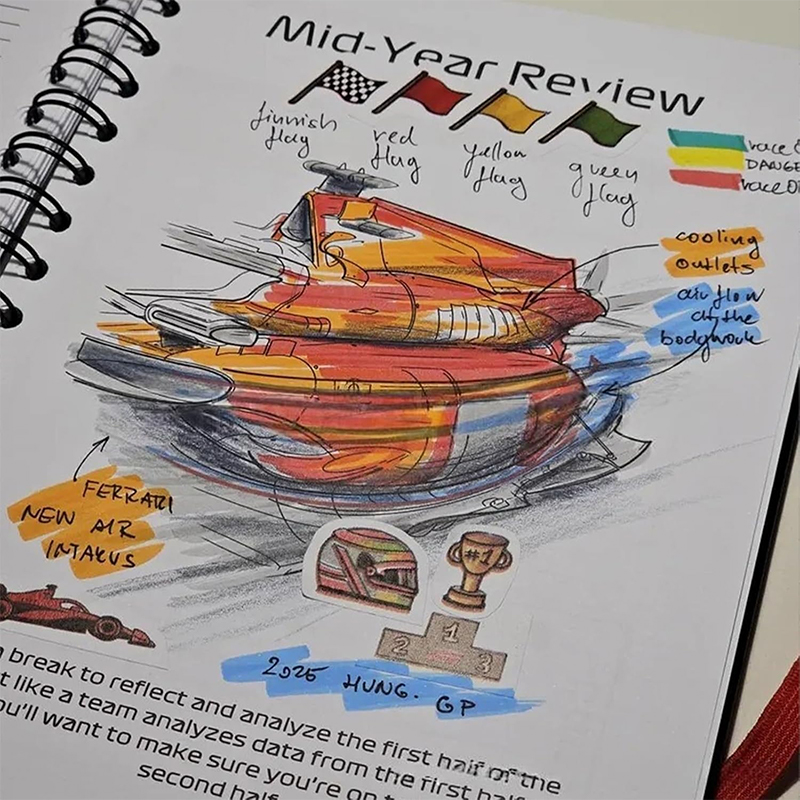 Mid-Year Review
finnish flag
red flag
yellow flag
green flag
race
DANGE
race
cooling
outlets
air flow
at the
bodywork
FERRARI
NEW AIR
INTAKUS
#1
1
2
3
2025 HUNG. GP
break to reflect and analyze the first half of the
like a team analyzes data from the first half
ou'll want to make sure you're on
second half